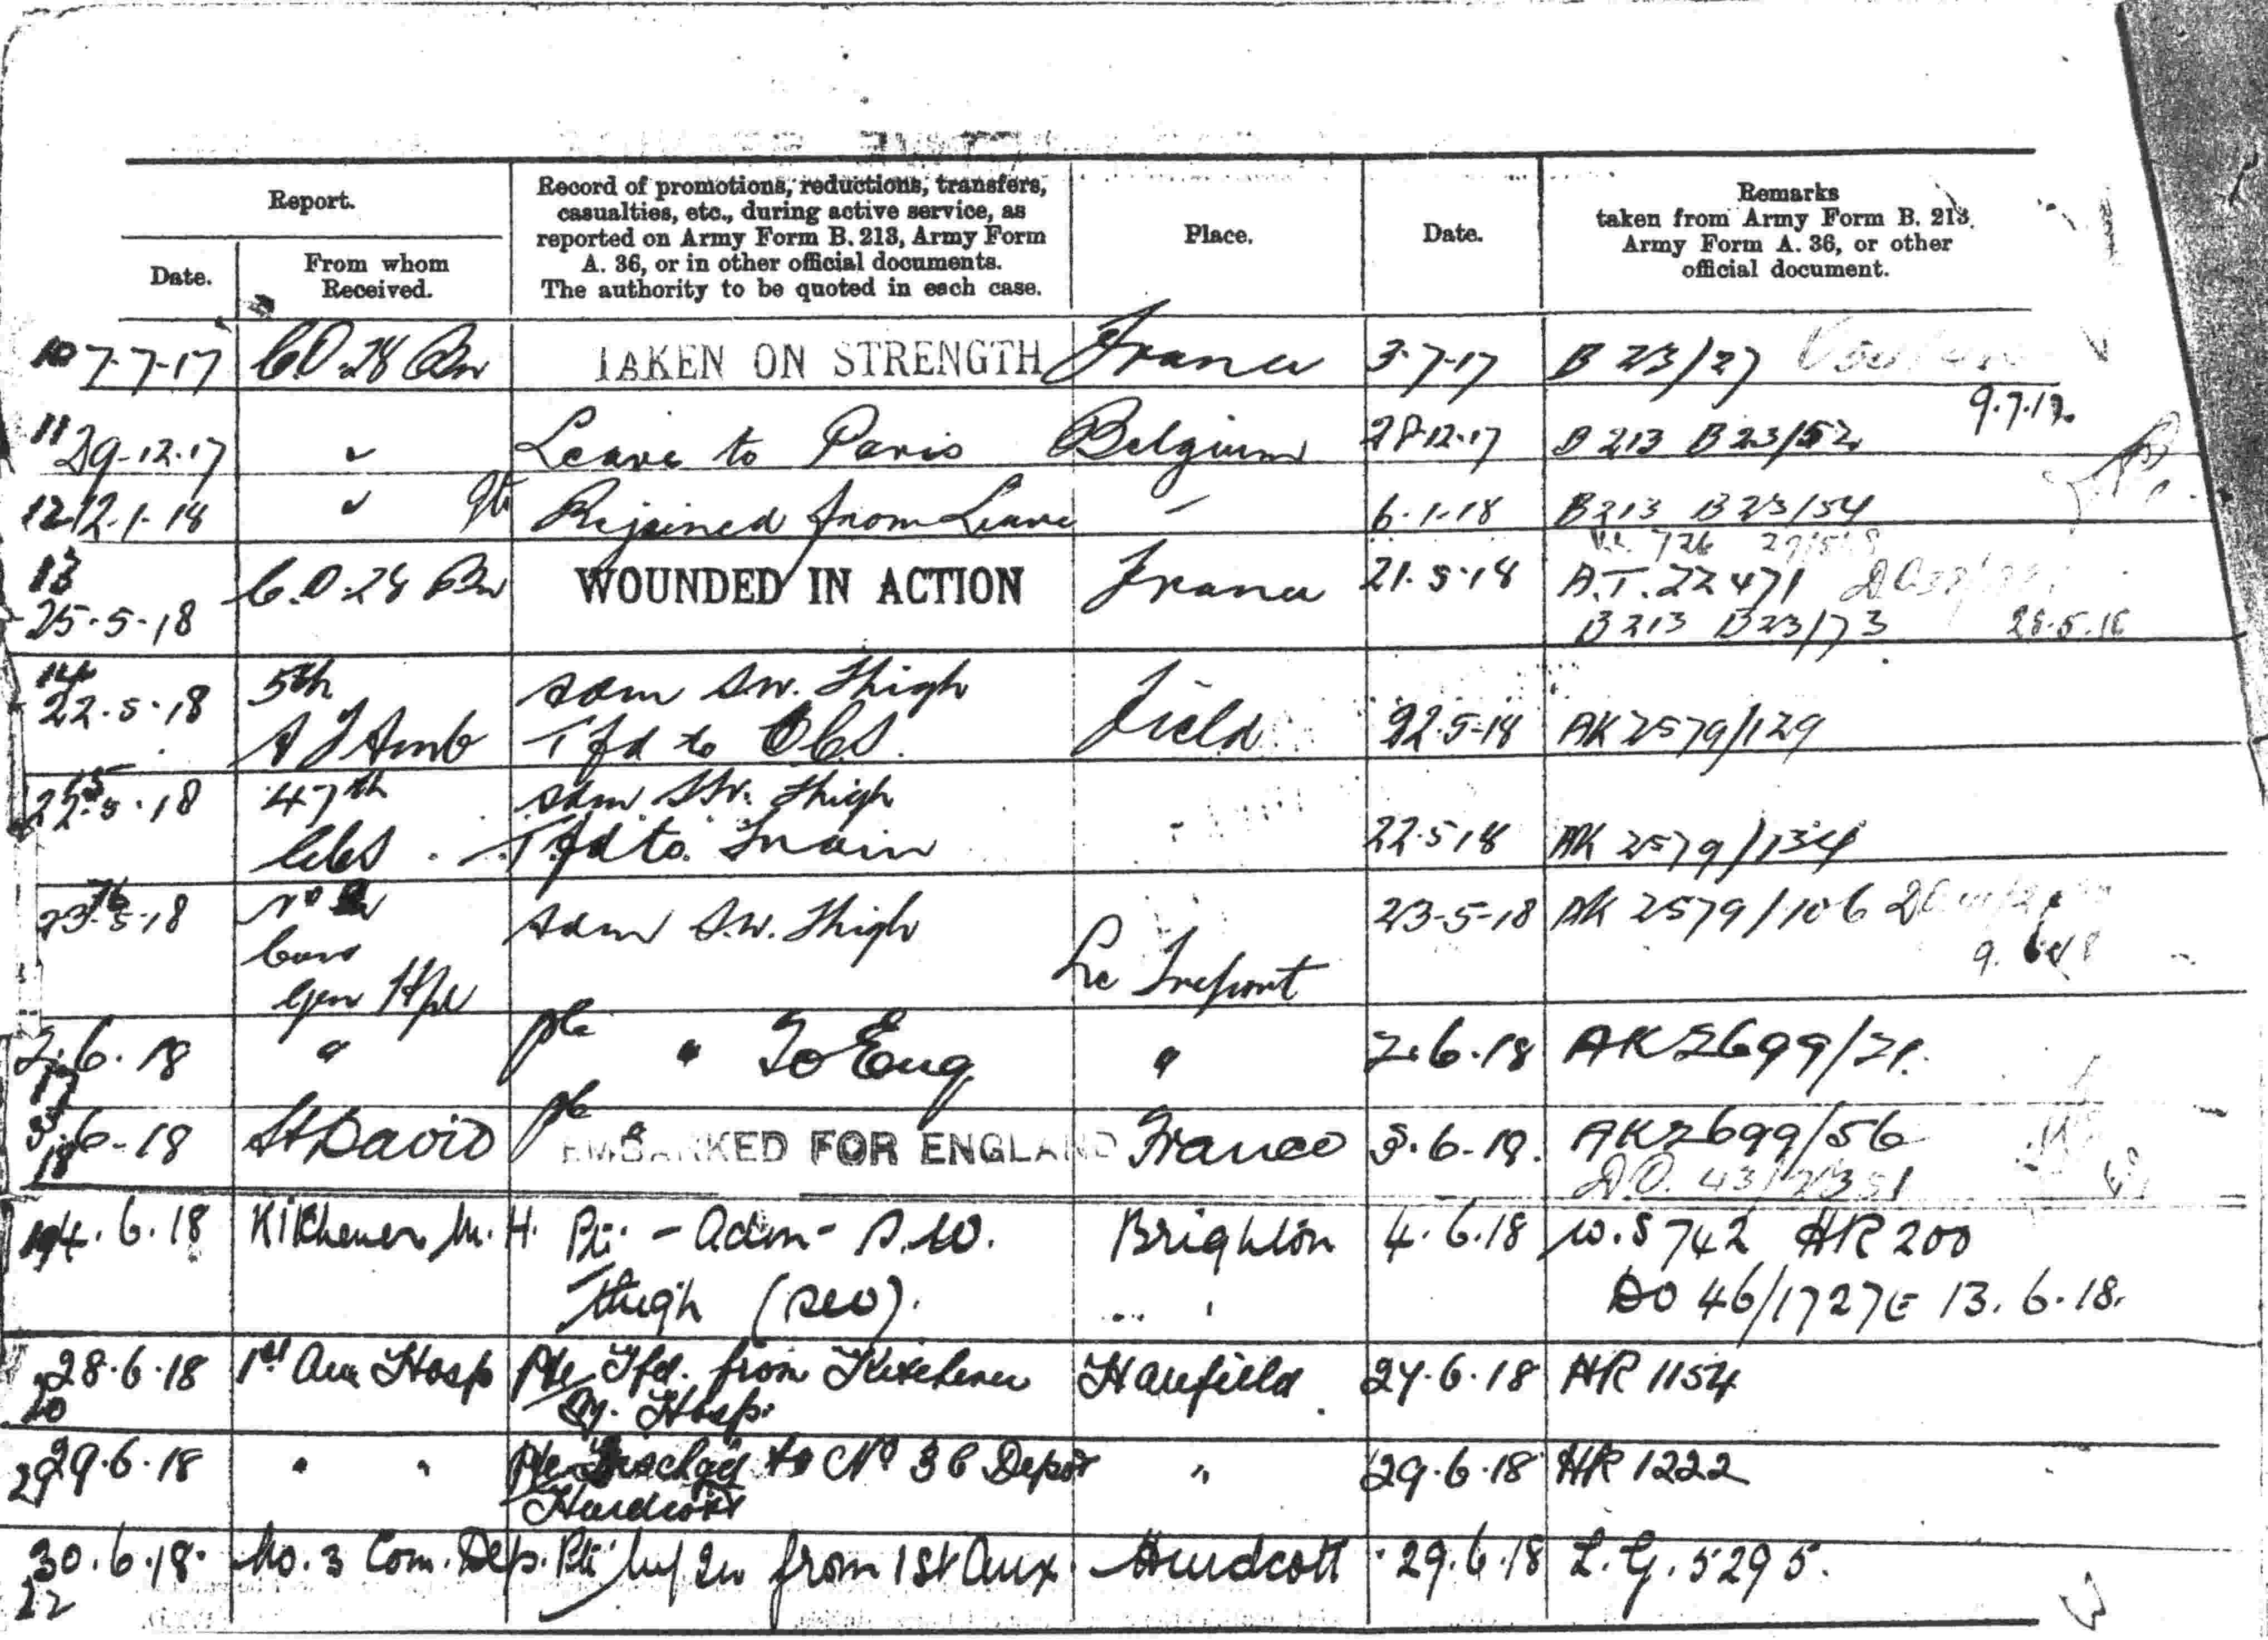 Report.
Date.
From whom
Received.
Record of promotions, reductions, transfers,
casualties, etc., during active service, as
reported on Army Form B. 213, Army Form
A. 36, or in other official documents.
The authority to be quoted in each case.
Place.
Date.
Remarks
taken from Army Form B. 213,
Army Form A. 36, or other
official document.
10 7-7-17 C.O. 28 Bn TAKEN ON STRENGTH France 3-7-17 B 23/27
9.7.17.
11 29-12-17 " Leave to Paris Belgium 28-12-17 B 213 B 23/52
12 12-1-18 " Rejoined from Leave " 6-1-18 B213 B23/54
13
25-5-18 C.O. 28 Bn WOUNDED IN ACTION France 21-5-18 A.T. 22471
B 213 B23/73 28.5.18
14
22-5-18 5th adm S.W. Thigh
A F Amb Tfd to CCS. Field 22-5-18 AK 2579/129
15
22-5-18 47th adm S.W. Thigh
CCS Tfd to Train 22-5-18 AK 2579/134
16
23-5-18 adm S.W. Thigh 23-5-18 AK 2579/106
Can
Gen Hpl Le Treport 9. 6.18
2.6.18 " pte " To Eng " 2.6.18 AK 2699/21.
17
3.6-18 St David pte " EMBARKED FOR ENGLAND France 3.6-18. AK2699/56
18 D.O. 43/
19 4.6.18 Kitchener M.H. Pte. - adm - S.W. Brighton 4.6.18 W.S 742 HR 200
Thigh (sev). DO 46/1727E 13.6.18.
28.6.18 1st Aux Hosp Pte Tfd. from Kitchener Harefield 27.6.18 HR 1154
20 My. Hosp.
29.6.18 " " Pte Dischgd to No 3 C Depot " 29.6.18 HR 1222
Hurdcott
30.6.18. No. 3 Com. Dep. Pte M/In from 1st Aux. Hurdcott 29.6.18 L.G. 5295.
22